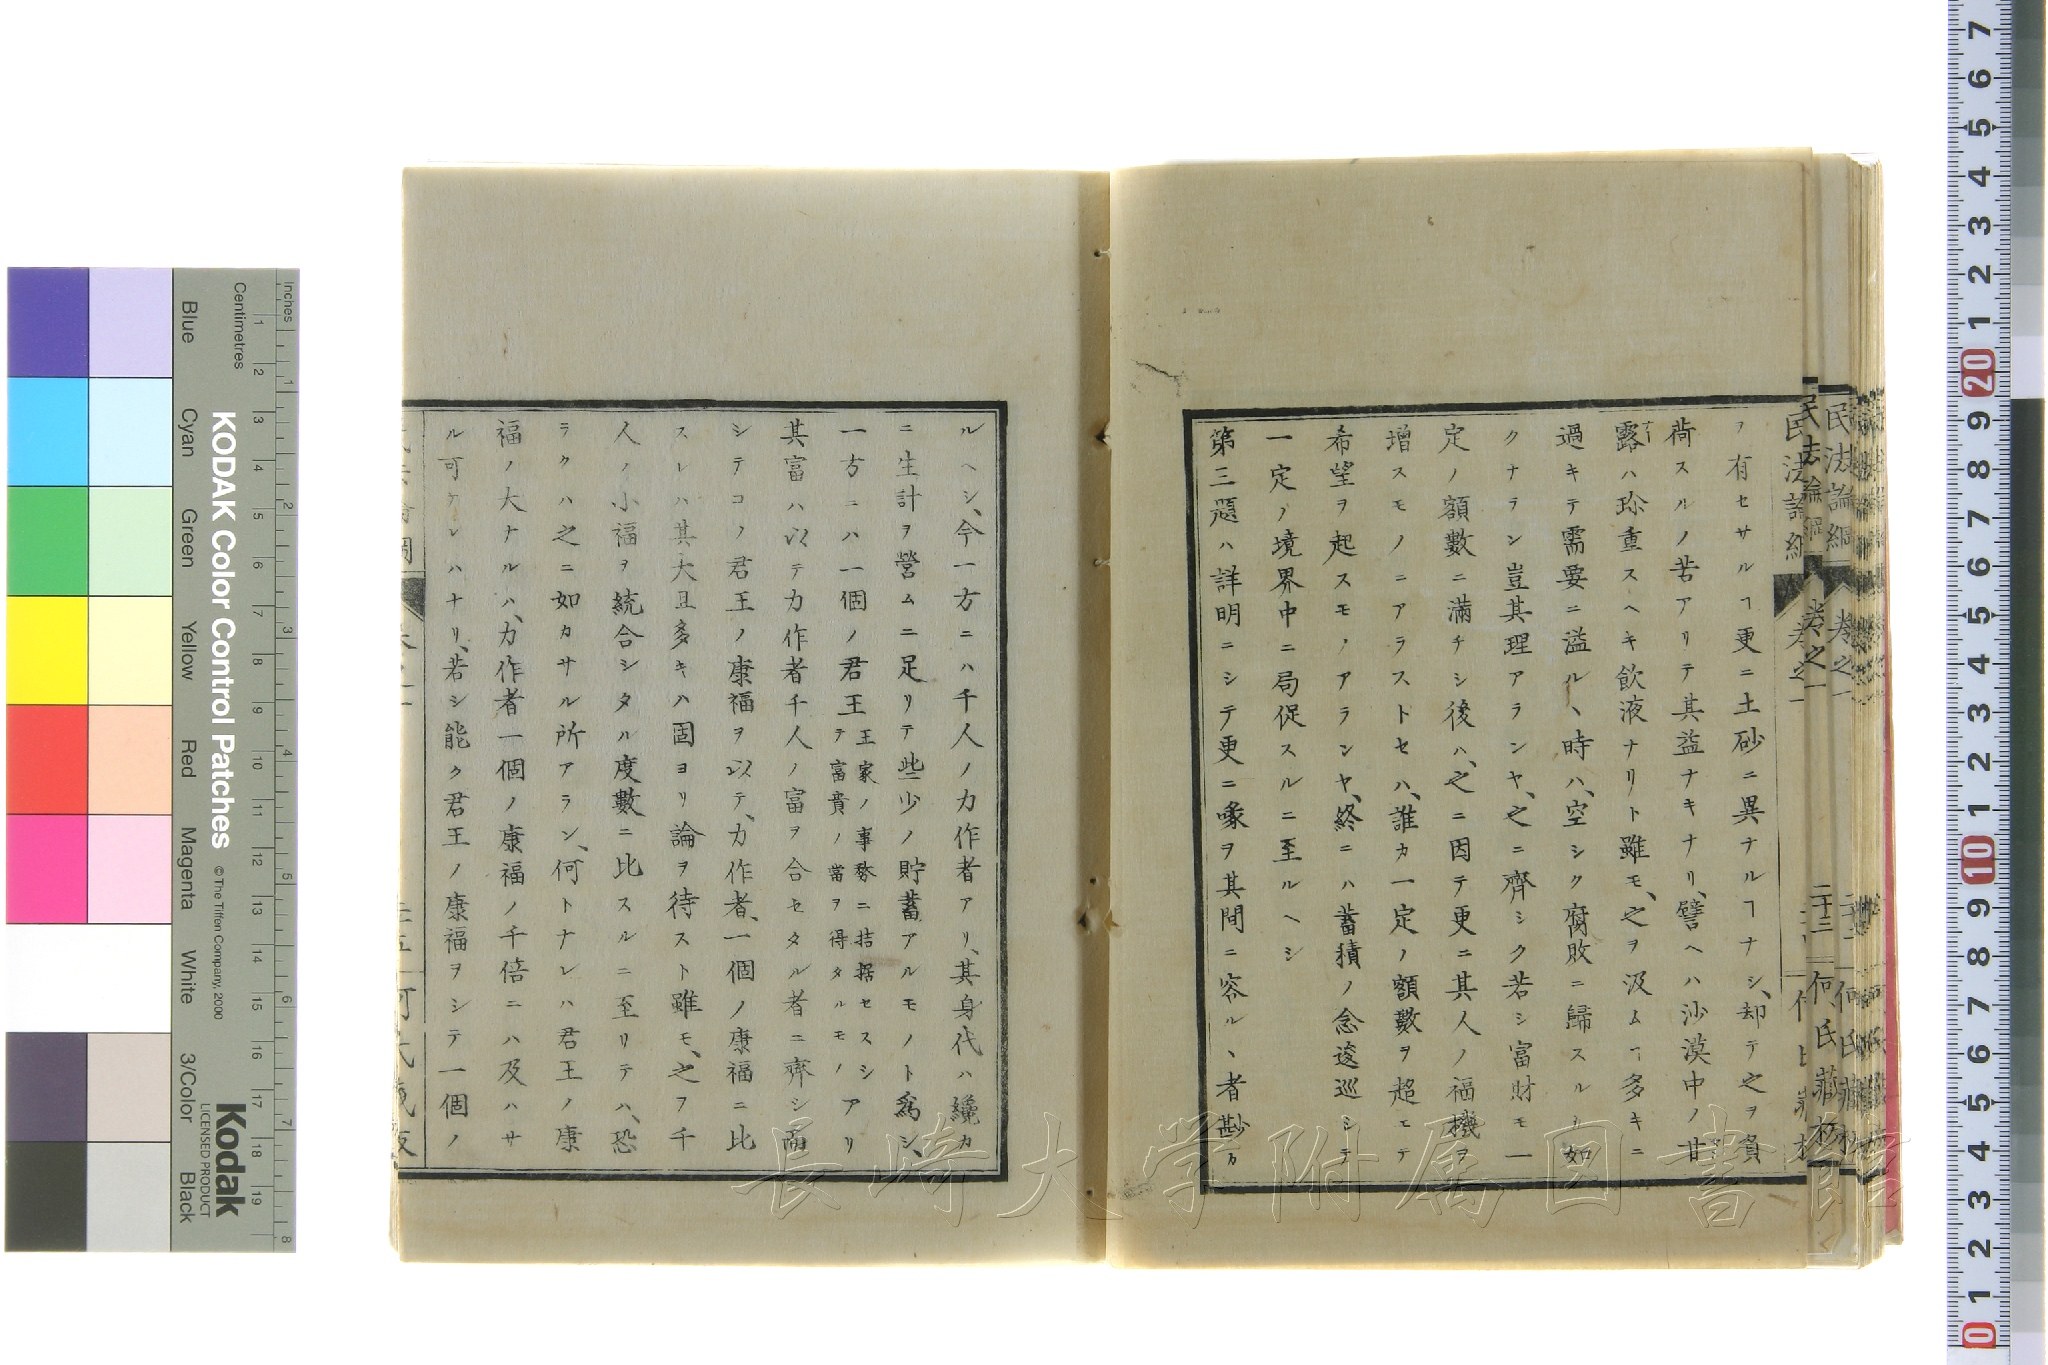 ヲ有セサルヿ更ニ土砂ニ異ナルヿナシ、却テ之ヲ負
荷スルノ苦アリテ其益ナキナリ、譬ヘハ沙漠中ノ甘
露ハ珍重スヘキ飲液ナリト雖モ、之ヲ汲ムヿ多キニ
過キテ需要ニ溢ルヽ時ハ、空シク腐敗ニ歸スルカ如
クナラン豈其理アランヤ、之ニ齊シク若シ富財モ一
定ノ額數ニ滿チシ後ハ、之ニ因テ更ニ其人ノ福機ヲ
增スモノニアラストセハ、誰カ一定ノ額數ヲ超エテ
希望ヲ起スモノアランヤ、終ニハ蓄積ノ念逡巡シテ
一定ノ境界中ニ局促スルニ至ルヘシ
第三題ハ詳明ニシテ更ニ喙ヲ其間ニ容ルヽ者尠カ
ルヘシ、今一方ニハ千人ノ力作者アリ、其身代ハ纔カ
ニ生計ヲ營ムニ足リテ些少ノ貯蓄アルモノト爲シ、
一方ニハ一個ノ君王王家ノ事務ニ拮据セスシテ富貴ノ當ヲ得タルモノアリ
其富ハ以テ力作者千人ノ富ヲ合セタル者ニ齊シ而
シテコノ君王ノ康福ヲ以テ、力作者、一個ノ康福ニ比
スレハ其大且多キハ固ヨリ論ヲ待スト雖モ、之ヲ千
人ノ小福ヲ統合シタル度數ニ比スルニ至リテハ、恐
ラクハ之ニ如カサル所アラン、何トナレハ君王ノ康
福ノ大ナルハ、力作者一個ノ康福ノ千倍ニハ及ハサ
ル可ケレハナリ、若シ能ク君王ノ康福ヲシテ一個ノ
民法論綱 卷之一 二十三 何氏藏板
長崎大学附属図書館
KODAK Color Control Patches
© The Tiffen Company, 2000
Kodak
LICENSED PRODUCT
Inches
Centimetres
Blue
Cyan
Green
Yellow
Red
Magenta
White
3/Color
Black